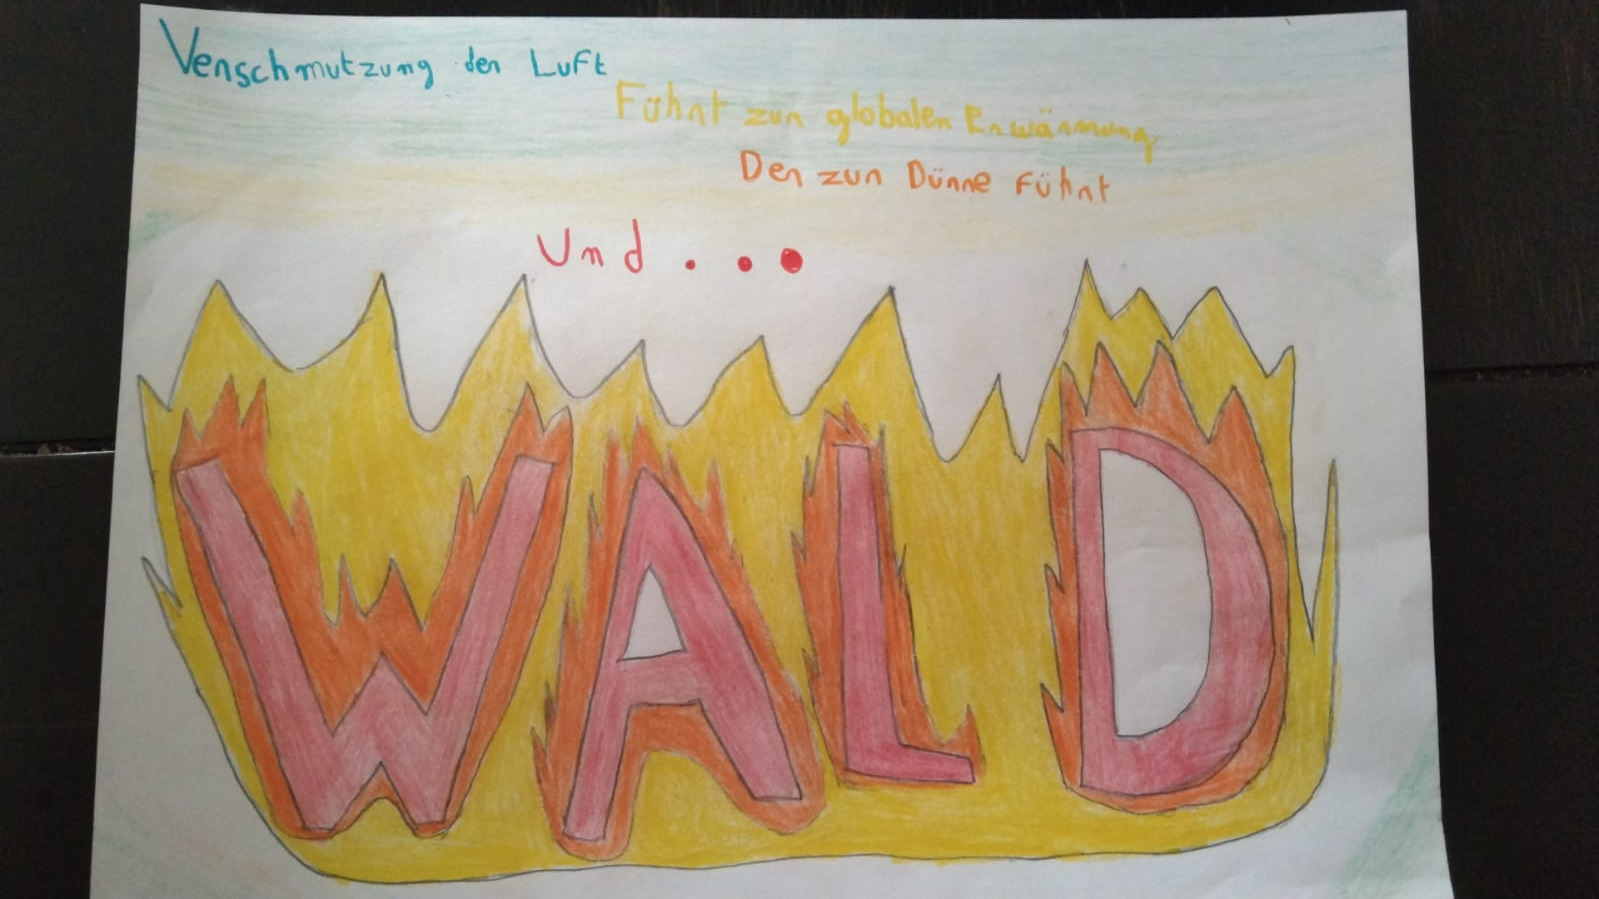 Verschmutzung der Luft
Führt zur globalen Erwärmung
Der zur Dürre führt
Und...
WALD